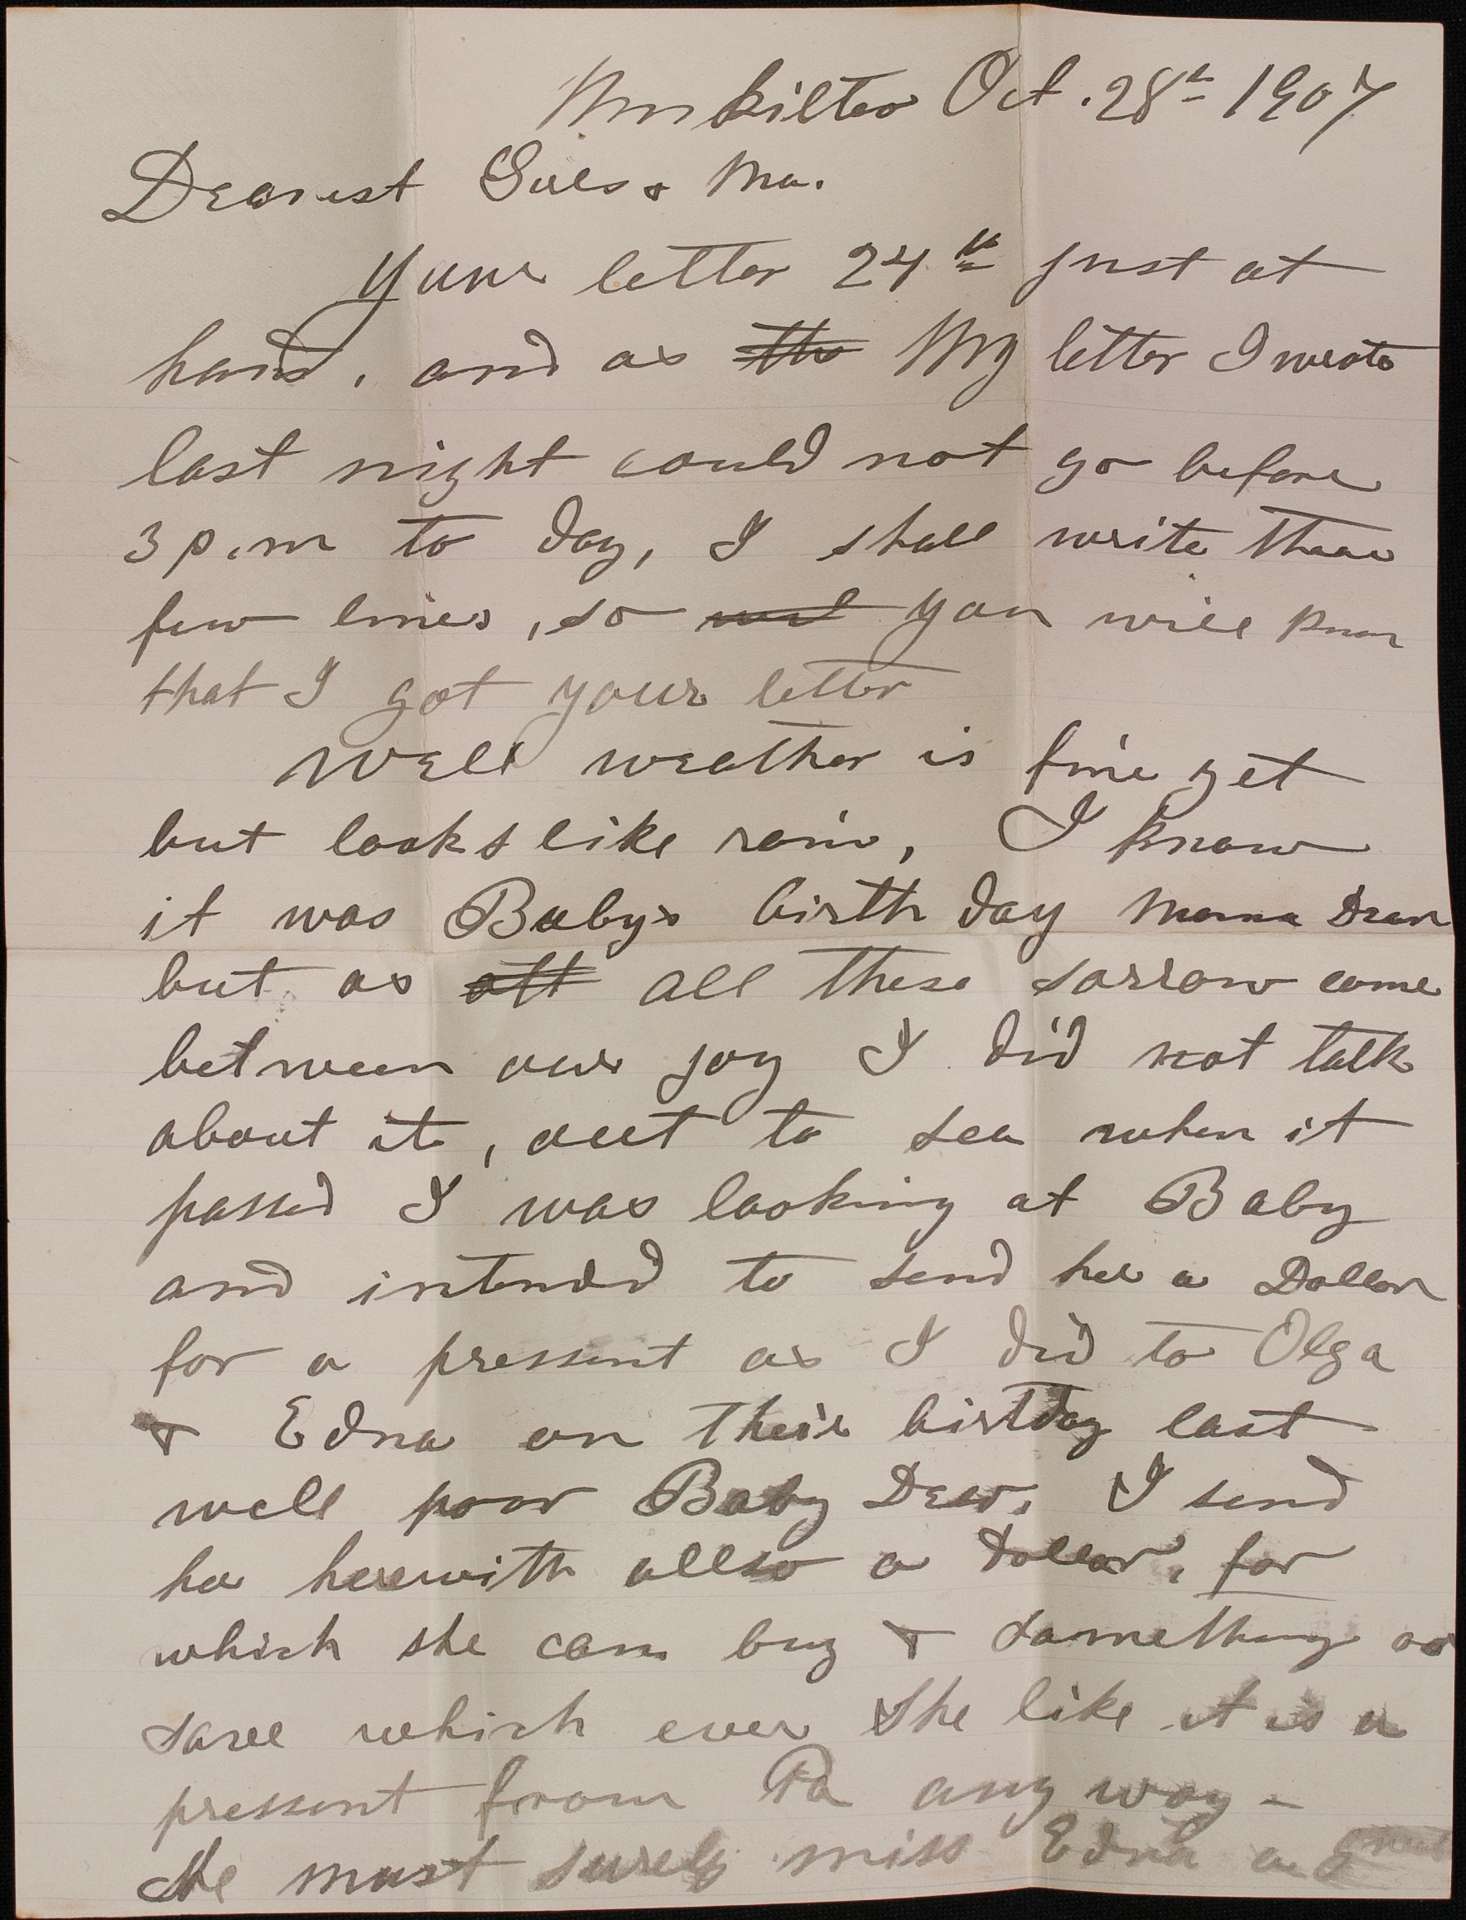 Mukilteo Oct. 28th 1907
Dearest Guls & Ma.
Your letter 24th just at
hand, and as the My letter I wrote
last night could not go before
3 p.m to day, I shall write these
few lines, so you will know
that I got your letter
Well weather is fine yet
but looks like rain, I know
it was Babys birth day Mama Dear
but as all these sorrow come
between our joy I did not talk
about it, out to sea when it
passed I was looking at Baby
and intended to send her a Dollar
for a pressent as I did to Olga
& Edna on their birtday last
well poor Baby Dear, I send
her herewith allso a dollar, for
which she can buy & something or
save which ever She like it is a
pressent from Pa any way -
She must surely miss Edna